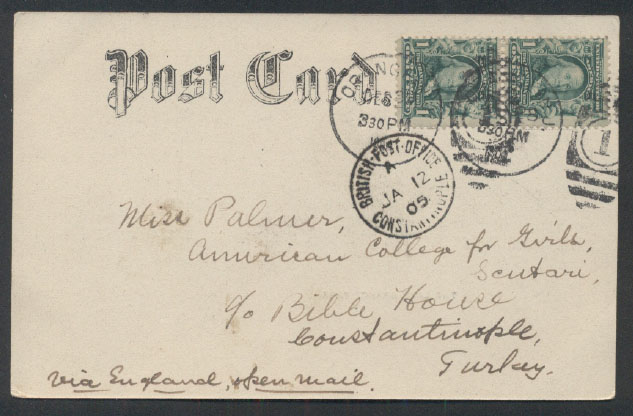 Post Card
DEC
330PM
830PM
1
BRITISH·POST·OFFICE
CONSTANTINOPLE
A
JA 12
05
Miss Palmer,
American College for Girls,
Scutari,
c/o Bible House
Constantinople,
Turkey.
via England, open mail.